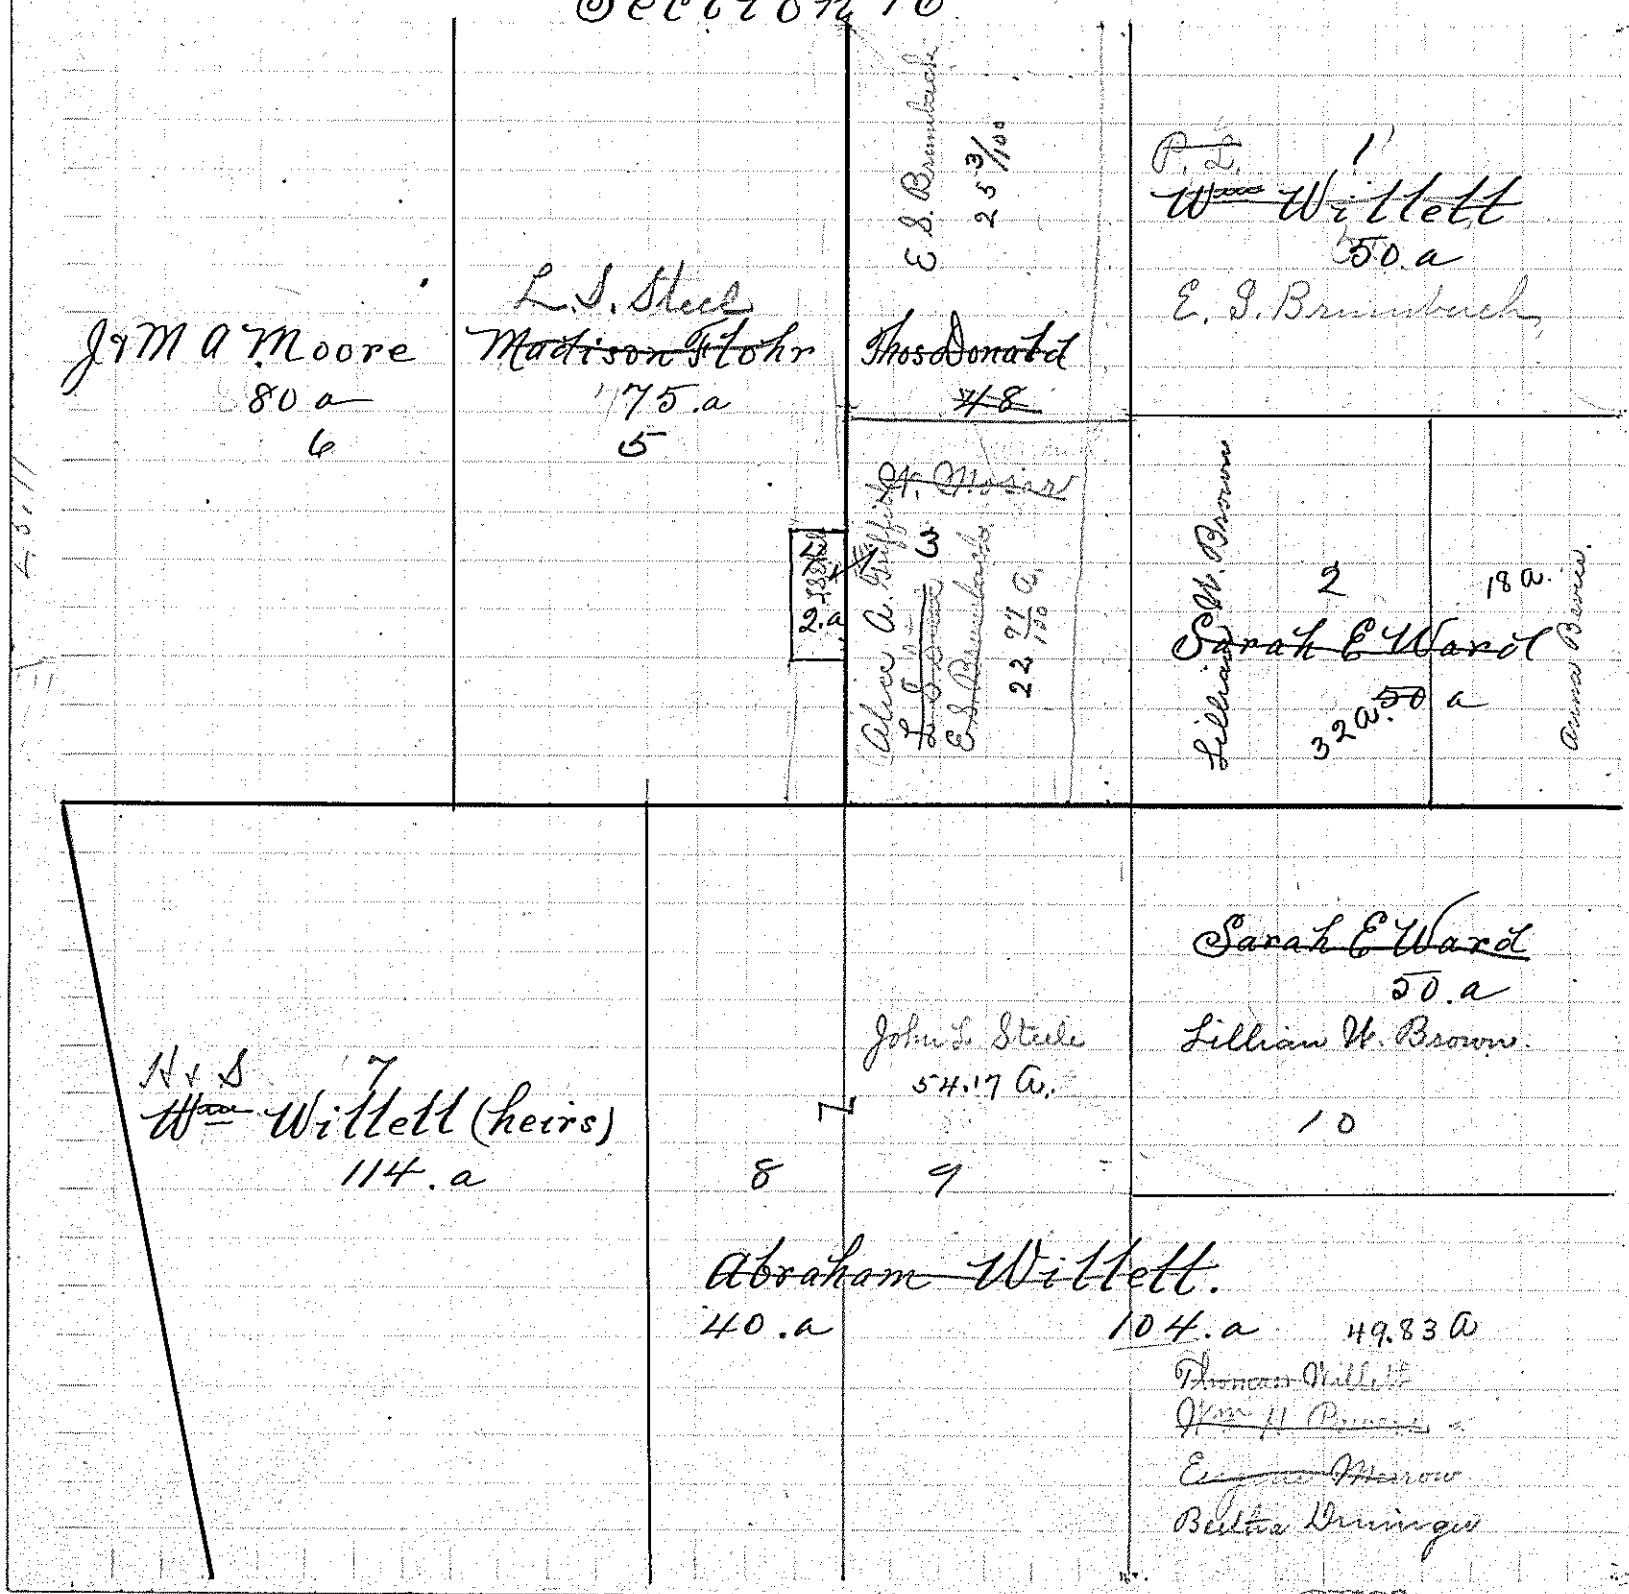 Section 16
J & M A Moore
80 a
6
L. S. Steel
Madison Flohr
75.a
5
E S. Brumbach
25 3/100
Thos Donald
48
P. L.
1
Wm Willett
50.a
E. S. Brumbach
W. Mosier
3
Alice A. Griffith
E. S. Brumbach
22 97/100 a.
4
2.a
Lillian W. Brown
2
Sarah E Ward
50 a
32 a.
18 a.
Anna Bevis.
H & S
7
Wm Willett (heirs)
114.a
8
John L Steele
54.17 a.
9
Z
Sarah E Ward
50.a
Lillian W. Brown.
10
Abraham Willett.
40.a
104.a
49.83 a
Thomas Willett
Wm H
Eugene Morrow
Bertha